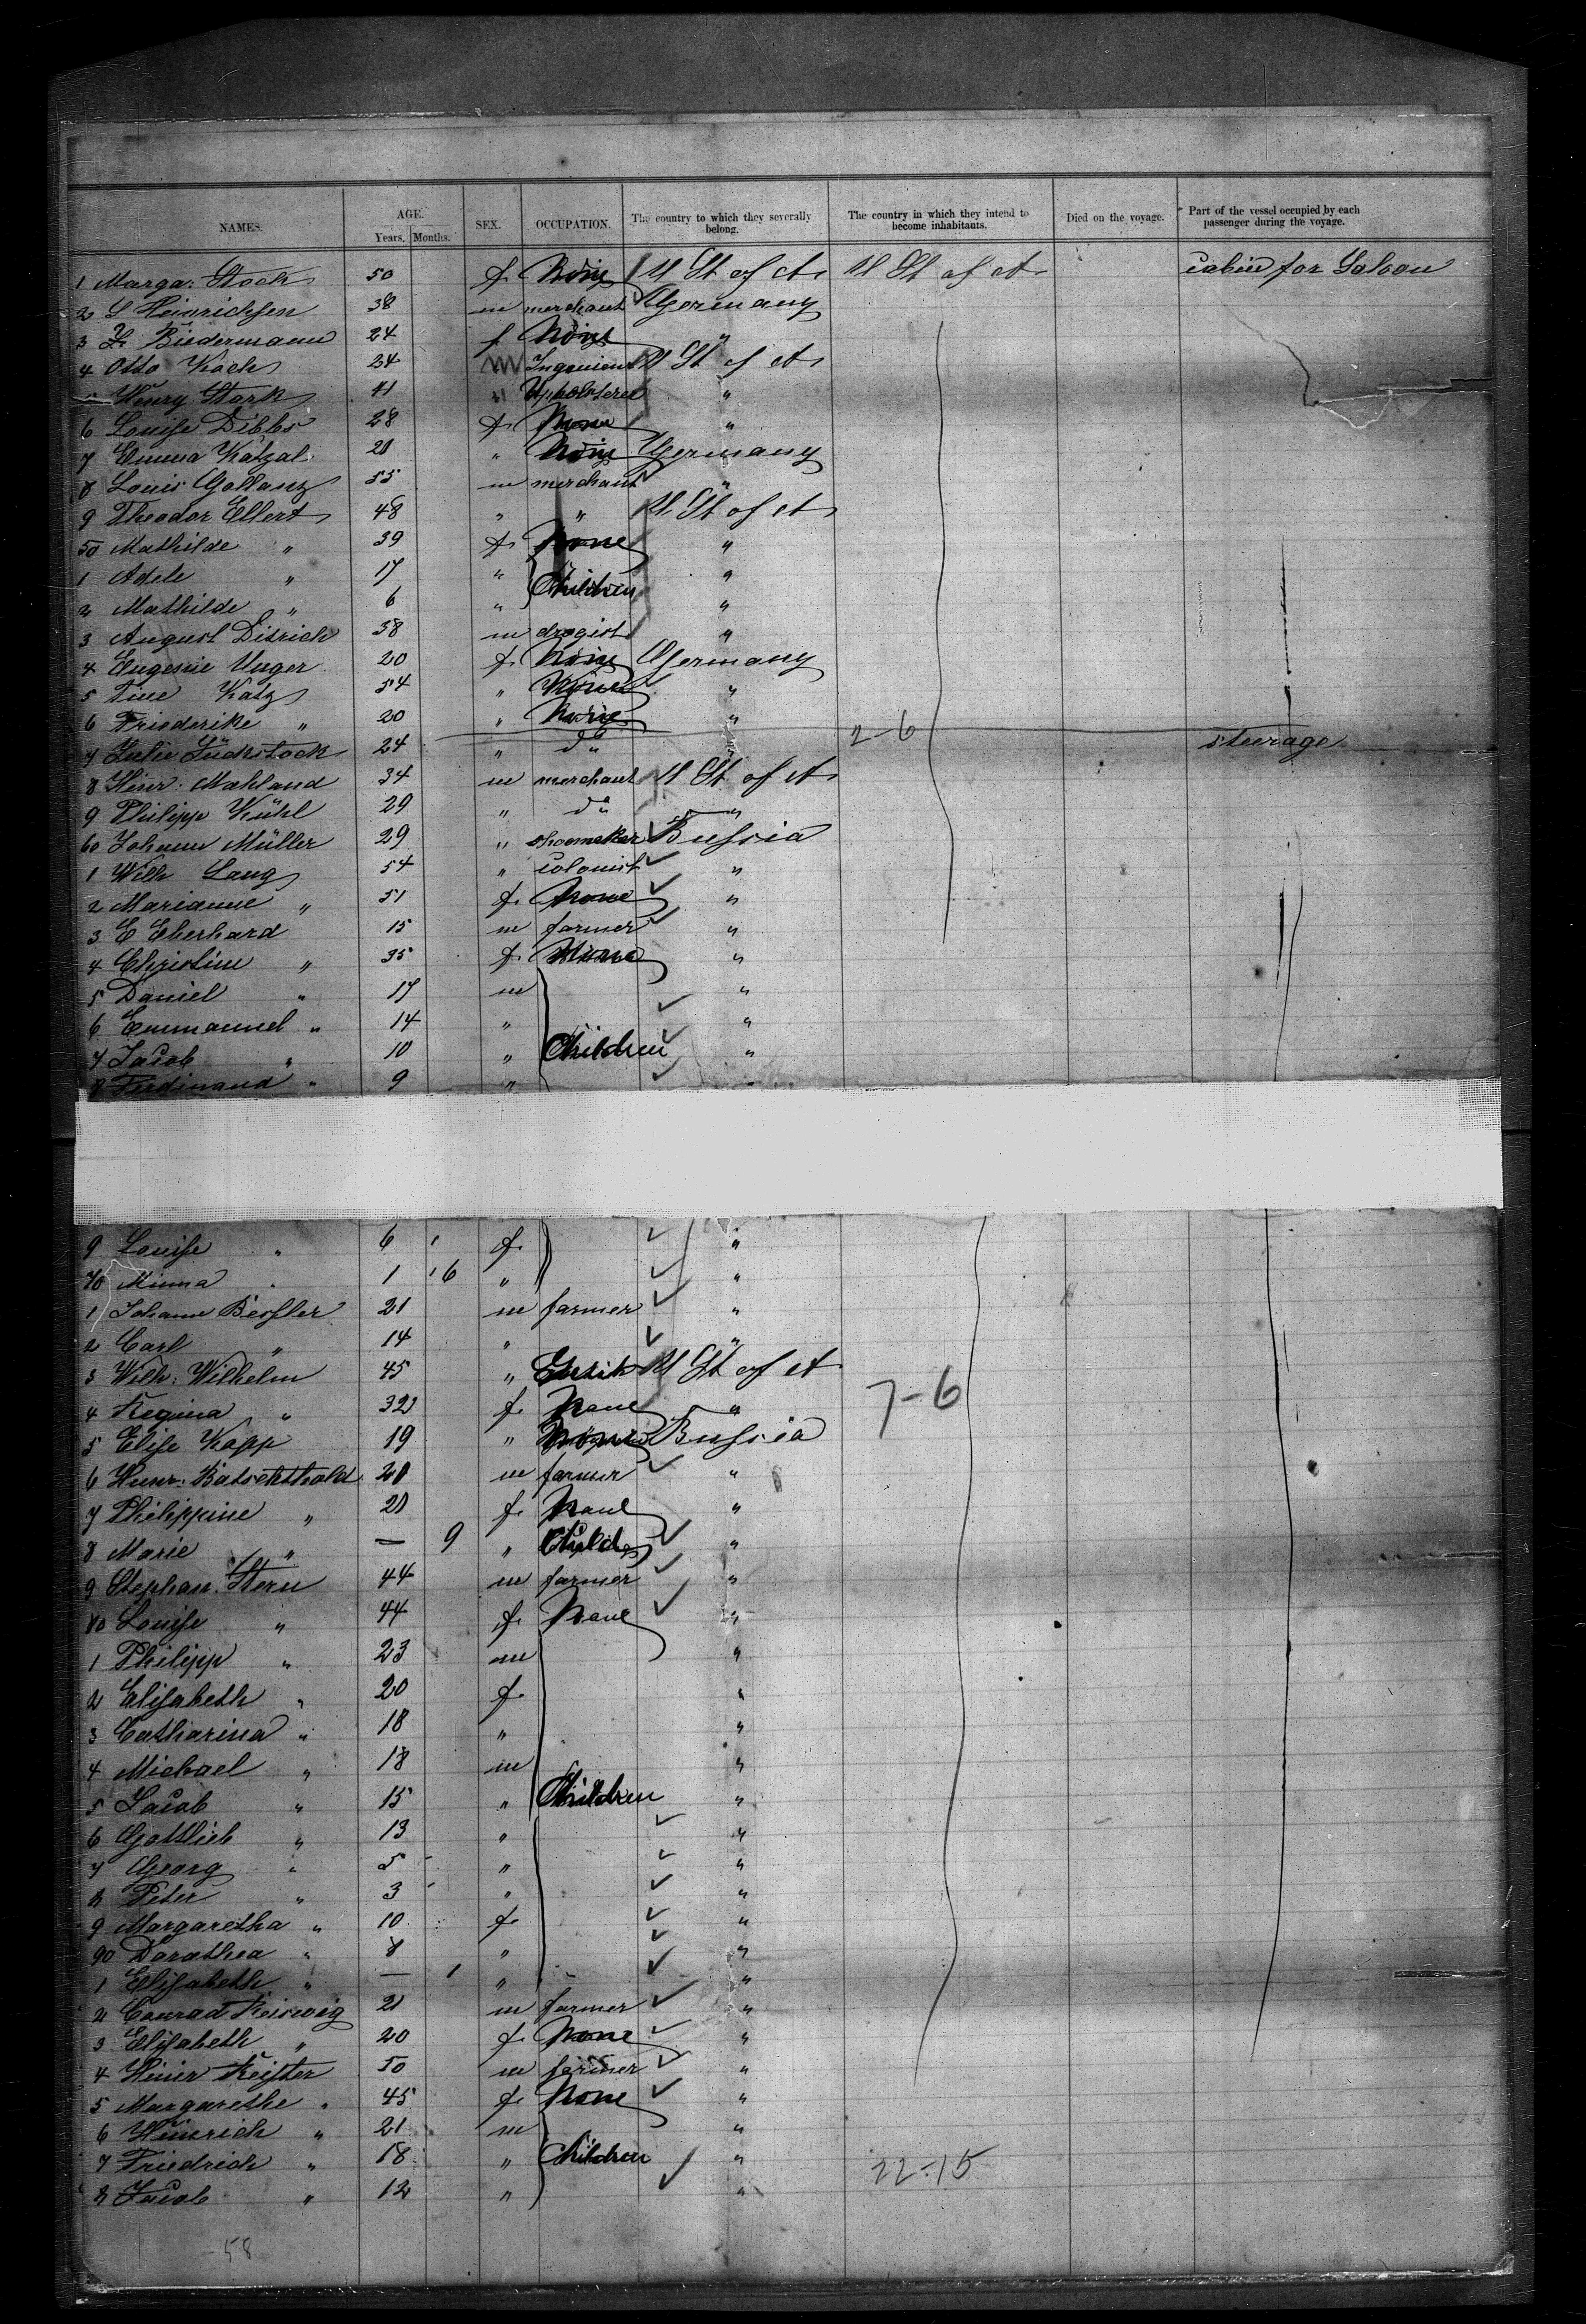 NAMES. AGE. Years. Months. SEX. OCCUPATION. The country to which they severally belong. The country in which they intend to become inhabitants. Died on the voyage. Part of the vessel occupied by each passenger during the voyage.
1 Marga: Stock 50 f. None U St of A U St of A cabin for Saloon
2 L Heinrichsen 38 m merchant Germany
3 Biedermann 24 f None "
4 Otto Koch 24 U St of A
Henry Stark 41 "
6 Louise Dibbs 28 f None "
7 Emma Katzal 21 " None Germany
8 Louis Gollanz 55 m merchant "
9 Theodor Ellert 48 " " U. St of A
50 Mathilde " 39 f. None "
1 Adele " 17 " Children "
2 Mathilde " 6 " "
3 August Disrich 38 m drogist "
4 Eugenie Unger 20 f. None Germany
5 Tine Katz 54 " None "
6 Friederike " 20 " None "
7 Julie Juckstock 24 " do " 2-6 steerage
8 Heinr: Mahland 34 m merchant U St of A
9 Philipp Kühl 29 " do "
60 Johann Müller 29 " shoemaker Russia
1 Wilh Lang 54 " colonist "
2 Marianne " 51 f. None "
3 E Eberhard 15 m farmer "
4 Christine " 35 f. None "
5 Daniel " 17 m "
6 Emmanuel " 14 " "
7 Jacob " 10 " Children "
8 Ferdinand " 9 "
9 Louise " 6 f. "
70 Minna " 1 6 " "
1 Johann Bessler 21 m farmer "
2 Carl " 14 " "
3 Wilh: Wilhelm 45 " U St of A
4 Regina " 32 f. None " 7-6
5 Elise Kapp 19 " None Russia
6 Heinr: 21 m farmer "
7 Philippine " 21 f. None "
8 Marie " — 9 " Child "
9 Stephan Stern 44 m farmer "
80 Louise " 44 f. None "
1 Philipp " 23 m "
2 Elisabeth " 20 f. "
3 Catharina " 18 " "
4 Michael " 18 m "
5 Jacob " 15 " Children "
6 Gottlieb " 13 " "
7 Georg " 5 " "
8 Peter " 3 " "
9 Margaretha " 10 f. "
90 Dorothea " 8 " "
1 Elisabeth " — 1 " "
2 Conrad Reiswig 21 m farmer "
3 Elisabeth " 20 f. None "
4 Heinr Reister 50 m farmer "
5 Margarethe " 45 f. None "
6 Heinrich " 21 m "
7 Friedrich " 18 " Children " 22-15
8 Jacob " 12 " "
58